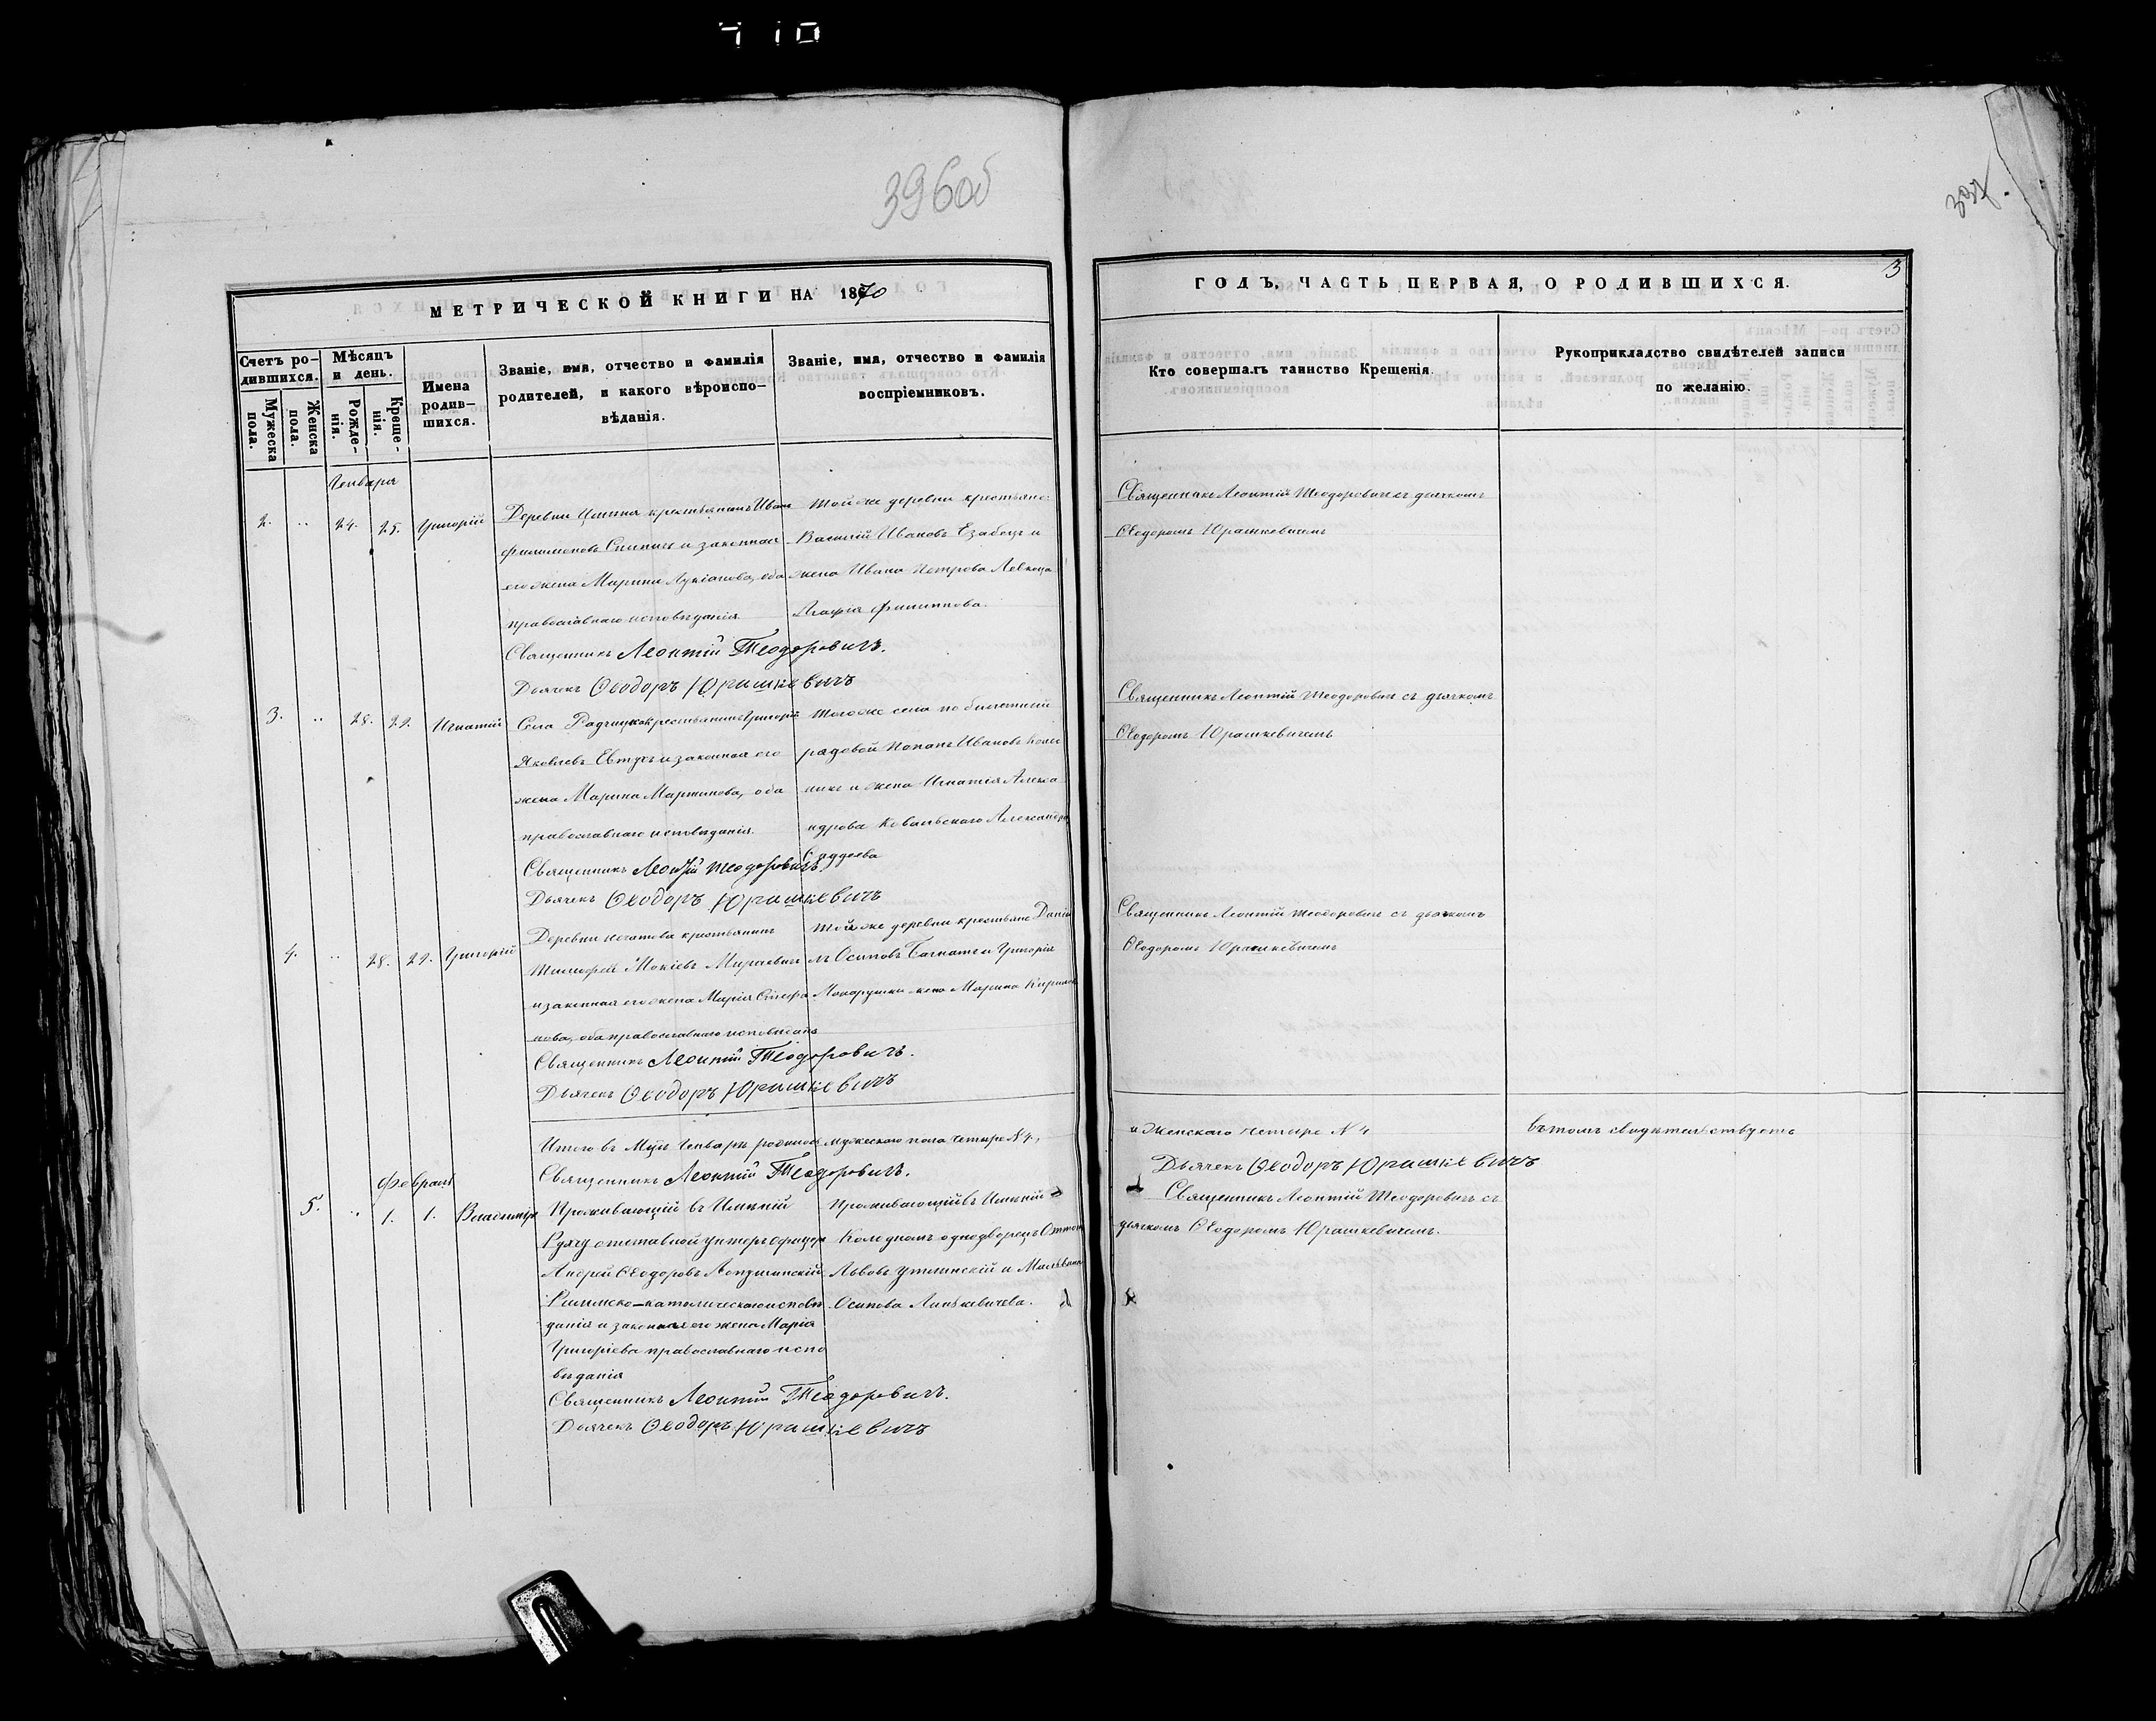 410
396об
397.
3
МЕТРИЧЕСКОЙ КНИГИ НА 1870
ГОДЪ, ЧАСТЬ ПЕРВАЯ, О РОДИВШИХСЯ.
Счетъ ро-
дившихся.
Мужеска
пола.
Женска
пола.
Мѣсяцъ
и день.
Рожде-
нія.
Креще-
нія.
Имена
родив-
шихся.
Званіе, имя, отчество и фамилія
родителей, и какого вѣроиспо-
вѣданія.
Званіе, имя, отчество и фамилія
воспріемниковъ.
Кто совершалъ таинство Крещенія.
Рукоприкладство свидѣтелей записи
по желанію.
Генваря
2. 24. 25. Григорій
Деревни крестьянинъ Иванъ
Филимоновъ и законная
его жена Марина Лукіанова, оба
православнаго исповѣданія
Священникъ Леонтій Теодоровичъ.
Дьячекъ Ѳеодоръ Юрашкевичъ
Той же деревни крестьяне:
Василій Ивановъ и
жена Ивана Петрова
Агафія Филиппова.
Священникъ Леонтій Теодоровичъ съ дьячкомъ
Ѳеодоромъ Юрашкевичемъ
3. 28. 29. Игнатій
Села Радчицка крестьянинъ Григорій
Яковлевъ Евтухъ и законная его
жена Марина Мартинова, оба
православнаго исповѣданія.
Священникъ Леонтій Теодоровичъ.
Дьячекъ Ѳеодоръ Юрашкевичъ
Того же села по билетный
рядовой Потапъ Ивановъ
и жена Игнатія Алекса
ндрова Ковальскаго Александра
Священникъ Леонтій Теодоровичъ съ дьячкомъ
Ѳеодоромъ Юрашкевичемъ
4. 28. 29. Григорій
Деревни крестьянинъ
Тимофей Мокіевъ
и законная его жена Марія Стефа
нова, оба православнаго исповѣданія
Священникъ Леонтій Теодоровичъ.
Дьячекъ Ѳеодоръ Юрашкевичъ
Той же деревни крестьяне Даніи
лъ Осиповъ и Григорія
жена Марина
Священникъ Леонтій Теодоровичъ съ дьячкомъ
Ѳеодоромъ Юрашкевичемъ
Итого въ Мцѣ Генварѣ родилось мужескаго пола четыре № 4,
и Женскаго четыре № 4
въ томъ свидѣтельствуетъ
Священникъ Леонтій Теодоровичъ.
Дьячекъ Ѳеодоръ Юрашкевичъ
Февраля
5. 1. 1. Владиміръ
Проживающій въ Имѣніи
отставной унтеръ офицеръ
Андрей Ѳеодоровъ
Римско-католическаго исповѣ
данія и законная его жена Марія
Григоріева православнаго испо
вѣданія
Священникъ Леонтій Теодоровичъ.
Дьячекъ Ѳеодоръ Юрашкевичъ
Проживающій въ Имѣніи
однодворецъ Оттонъ
Львовъ и
Осипова
Священникъ Леонтій Теодоровичъ съ
дьячкомъ Ѳеодоромъ Юрашкевичемъ.